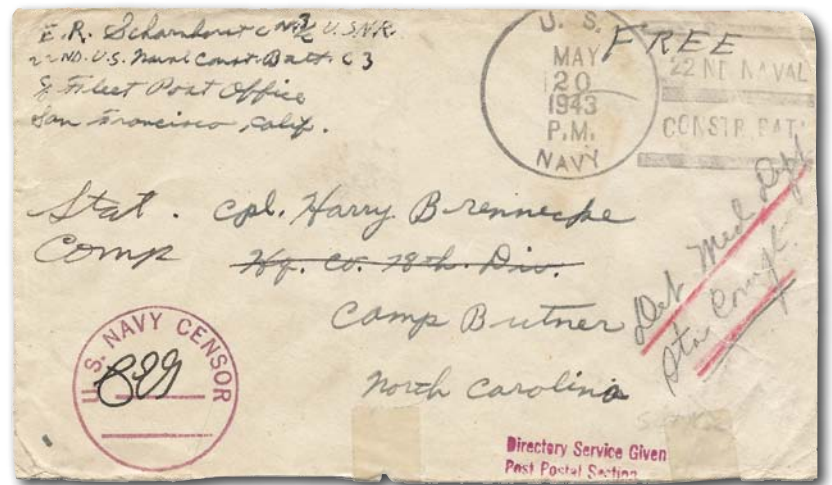 E. R. Scharnhorst CM 3/c U.S.N.R.
22ND. U.S. Naval Const. Batt. C 3
% Fleet Post Office
San Francisco, Calif.
U. S.
MAY
20
1943
P.M.
NAVY
FREE
22 ND NAVAL
CONSTR. BAT.
Stat. Cpl. Harry Brennecke
Comp Hq. Co. 78th. Div.
Camp Butner
North Carolina
Det Med Dept
Sta Compl.
U. S. NAVY CENSOR
Directory Service Given
Post Postal Section